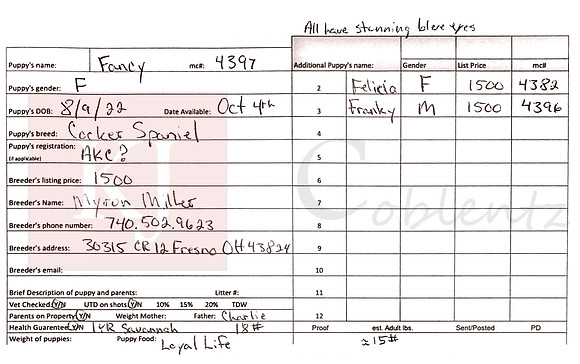 All have stunning blue eyes
Puppy's name: Fancy mc#: 4397
Additional Puppy's name: Gender List Price mc#
Puppy's gender: F
2 Felicia F 1500 4382
Puppy's DOB: 8/9/22 Date Available: Oct 4th
3 Franky M 1500 4396
Puppy's breed: Cocker Spaniel
4
Puppy's registration: AKC?
(if applicable)
5
Breeder's listing price: 1500
6
Breeder's Name: Myron Miller
7
Coblentz
Breeder's phone number: 740.502.9623
8
Breeder's address: 30315 CR 12 Fresno OH 43824
9
Breeder's email:
10
Brief Description of puppy and parents: Litter #:
11
Vet Checked: Y/N UTD on shots Y/N 10% 15% 20% TDW
Parents on Property Y/N Weight Mother: Father: Charlie
12
Health Guarenteed Y/N 1 YR Savannah 18#
Proof est. Adult lbs. Sent/Posted PD
Weight of puppies: Puppy Food: Loyal Life
≥15#